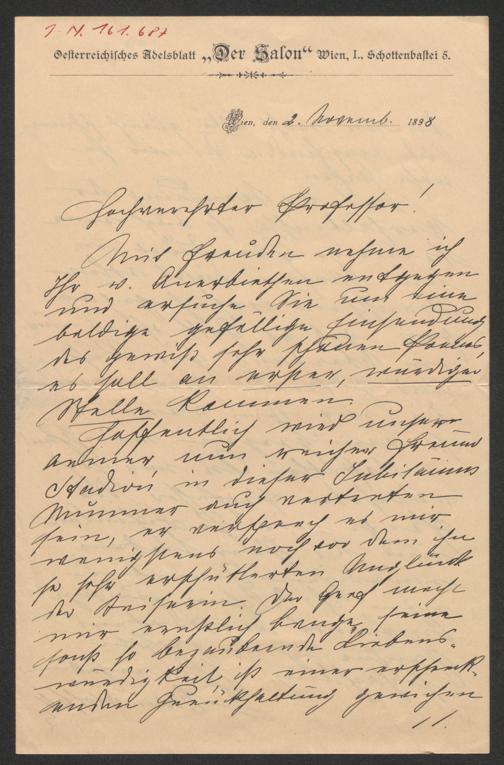 I. N. 161.687
Oesterreichisches Adelsblatt „Der Salon“ Wien, I., Schottenbastei 5.
Wien, den 2. Novemb. 1898
Hochverehrter Professor!
Mit Freuden nehme ich
Ihr w. Anerbiethen entgegen
und ersuche Sie um eine
baldige gefällige Einsendung
des gewiß sehr schönen Poems,
es soll an erster, würdiger
Stelle kommen.
Hoffentlich wird unser
armer nun reicher Freund
Stadion in dieser Jubiläums
Nummer auch vertreten
sein, er versprach es mir
wenigstens noch vor dem ihn
so sehr erschütterten Unglück
der Kaiserin. Der Graf macht
mir ernstlich bange, seine
sonst so bezaubernde Liebens-
würdigkeit ist einer erschreck-
enden Zurückhaltung gewichen
//.